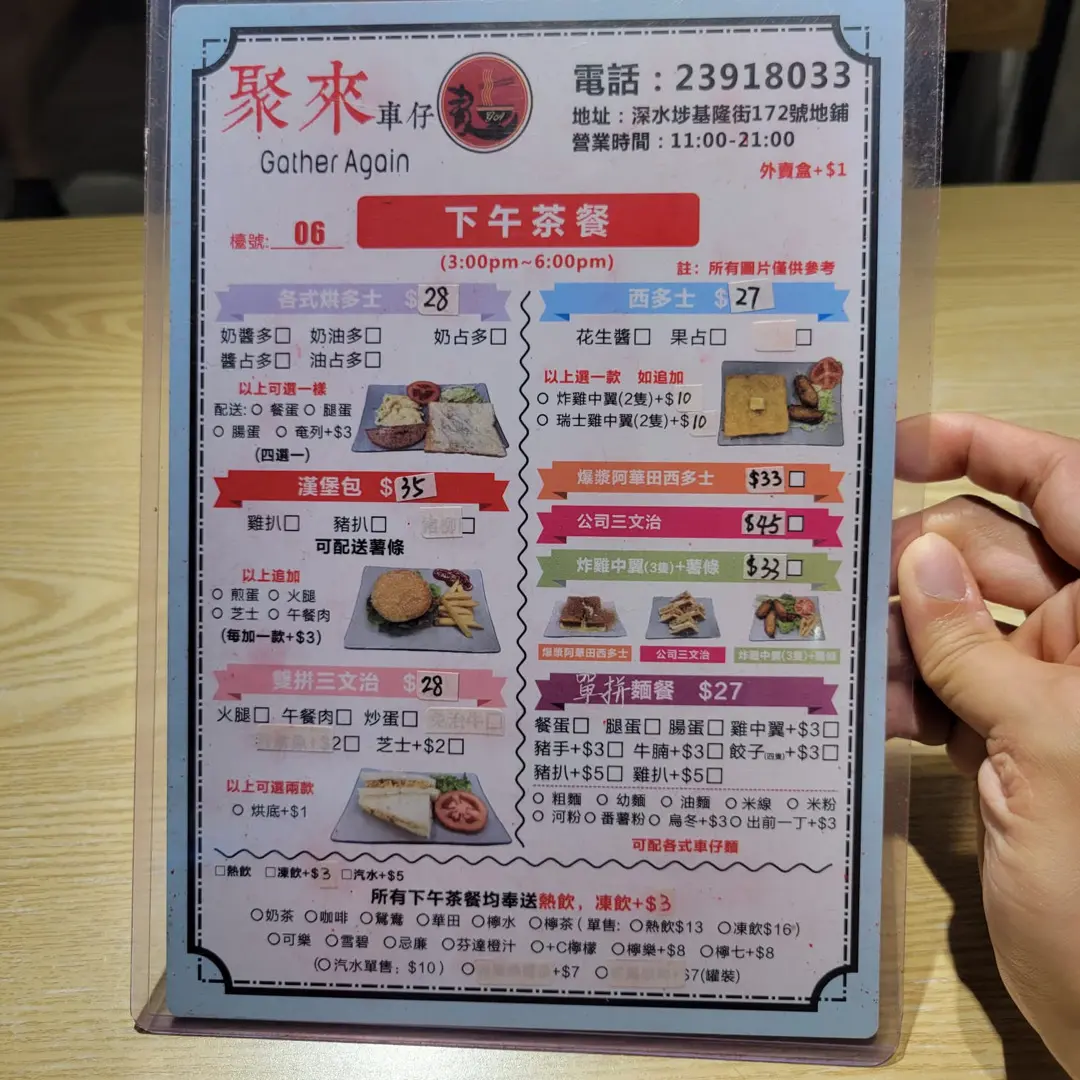 聚來車仔麵
Gather Again
電話：23918033
地址：深水埗基隆街172號地鋪
營業時間：11:00-21:00
外賣盒+$1
檯號: 06
下午茶餐
(3:00pm~6:00pm)
註：所有圖片僅供參考
各式烘多士 $28
奶醬多□ 奶油多□ 奶占多□
醬占多□ 油占多□
以上可選一樣
配送: ○ 餐蛋 ○ 腿蛋
○ 腸蛋 ○ 奄列+$3
(四選一)
漢堡包 $35
雞扒□ 豬扒□ □
可配送薯條
以上追加
○ 煎蛋 ○ 火腿
○ 芝士 ○ 午餐肉
(每加一款+$3)
雙拼三文治 $28
火腿□ 午餐肉□ 炒蛋□ □
2□ 芝士+$2□
以上可選兩款
○ 烘底+$1
西多士 $27
花生醬□ 果占□ □
以上選一款 如追加
○ 炸雞中翼(2隻)+$10
○ 瑞士雞中翼(2隻)+$10
爆漿阿華田西多士 $33□
公司三文治 $45□
炸雞中翼(3隻)+薯條 $33□
爆漿阿華田西多士 公司三文治 炸雞中翼(3隻)+薯條
單拼麵餐 $27
餐蛋□ 腿蛋□ 腸蛋□ 雞中翼+$3□
豬手+$3□ 牛腩+$3□ 餃子(四隻)+$3□
豬扒+$5□ 雞扒+$5□
○ 粗麵 ○ 幼麵 ○ 油麵 ○ 米線 ○ 米粉
○ 河粉 ○ 番薯粉 ○ 烏冬+$3 ○ 出前一丁+$3
可配各式車仔麵
□熱飲 □凍飲+$3 □汽水+$5
所有下午茶餐均奉送熱飲，凍飲+$3
○奶茶 ○咖啡 ○鴛鴦 ○華田 ○檸水 ○檸茶 ( 單售: ○熱飲$13 ○凍飲$16 )
○可樂 ○雪碧 ○忌廉 ○芬達橙汁 ○+C檸檬 ○檸樂+$8 ○檸七+$8
(○汽水單售；$10 ) ○ +$7 ○ $7(罐裝)